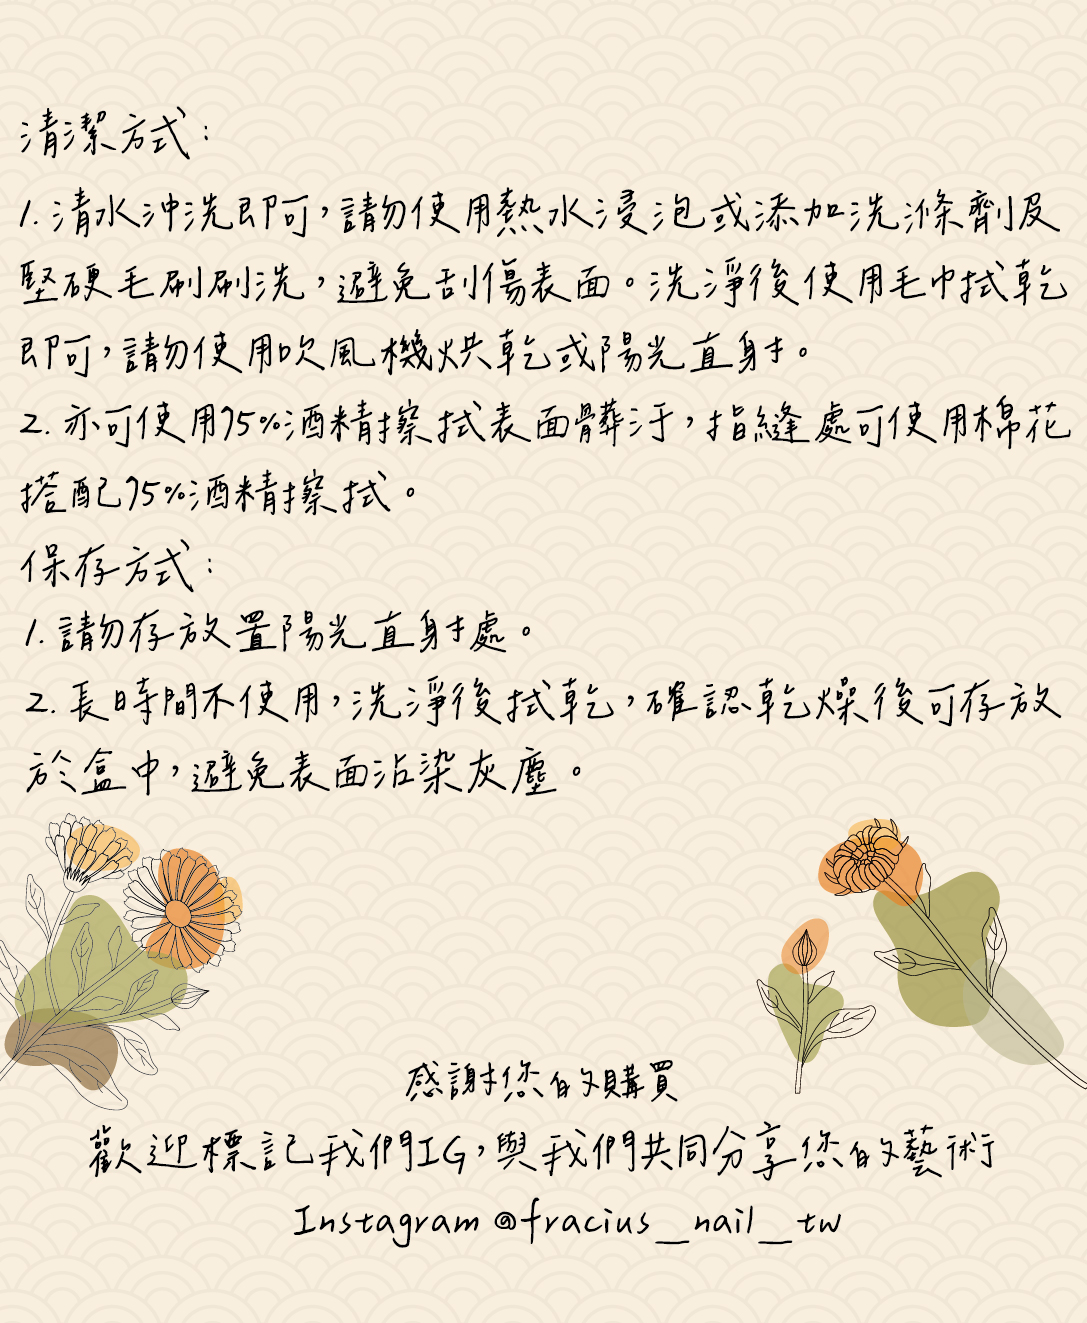 清潔方式：
1. 清水沖洗即可，請勿使用熱水浸泡或添加洗滌劑及
堅硬毛刷刷洗，避免刮傷表面。洗淨後使用毛巾拭乾
即可，請勿使用吹風機烘乾或陽光直射。
2. 亦可使用75%酒精擦拭表面髒汙，指縫處可使用棉花
搭配75%酒精擦拭。
保存方式：
1. 請勿存放置陽光直射處。
2. 長時間不使用，洗淨後拭乾，確認乾燥後可存放
於盒中，避免表面沾染灰塵。
感謝您的購買
歡迎標記我們IG，與我們共同分享您的藝術
Instagram @fracius_nail_tw